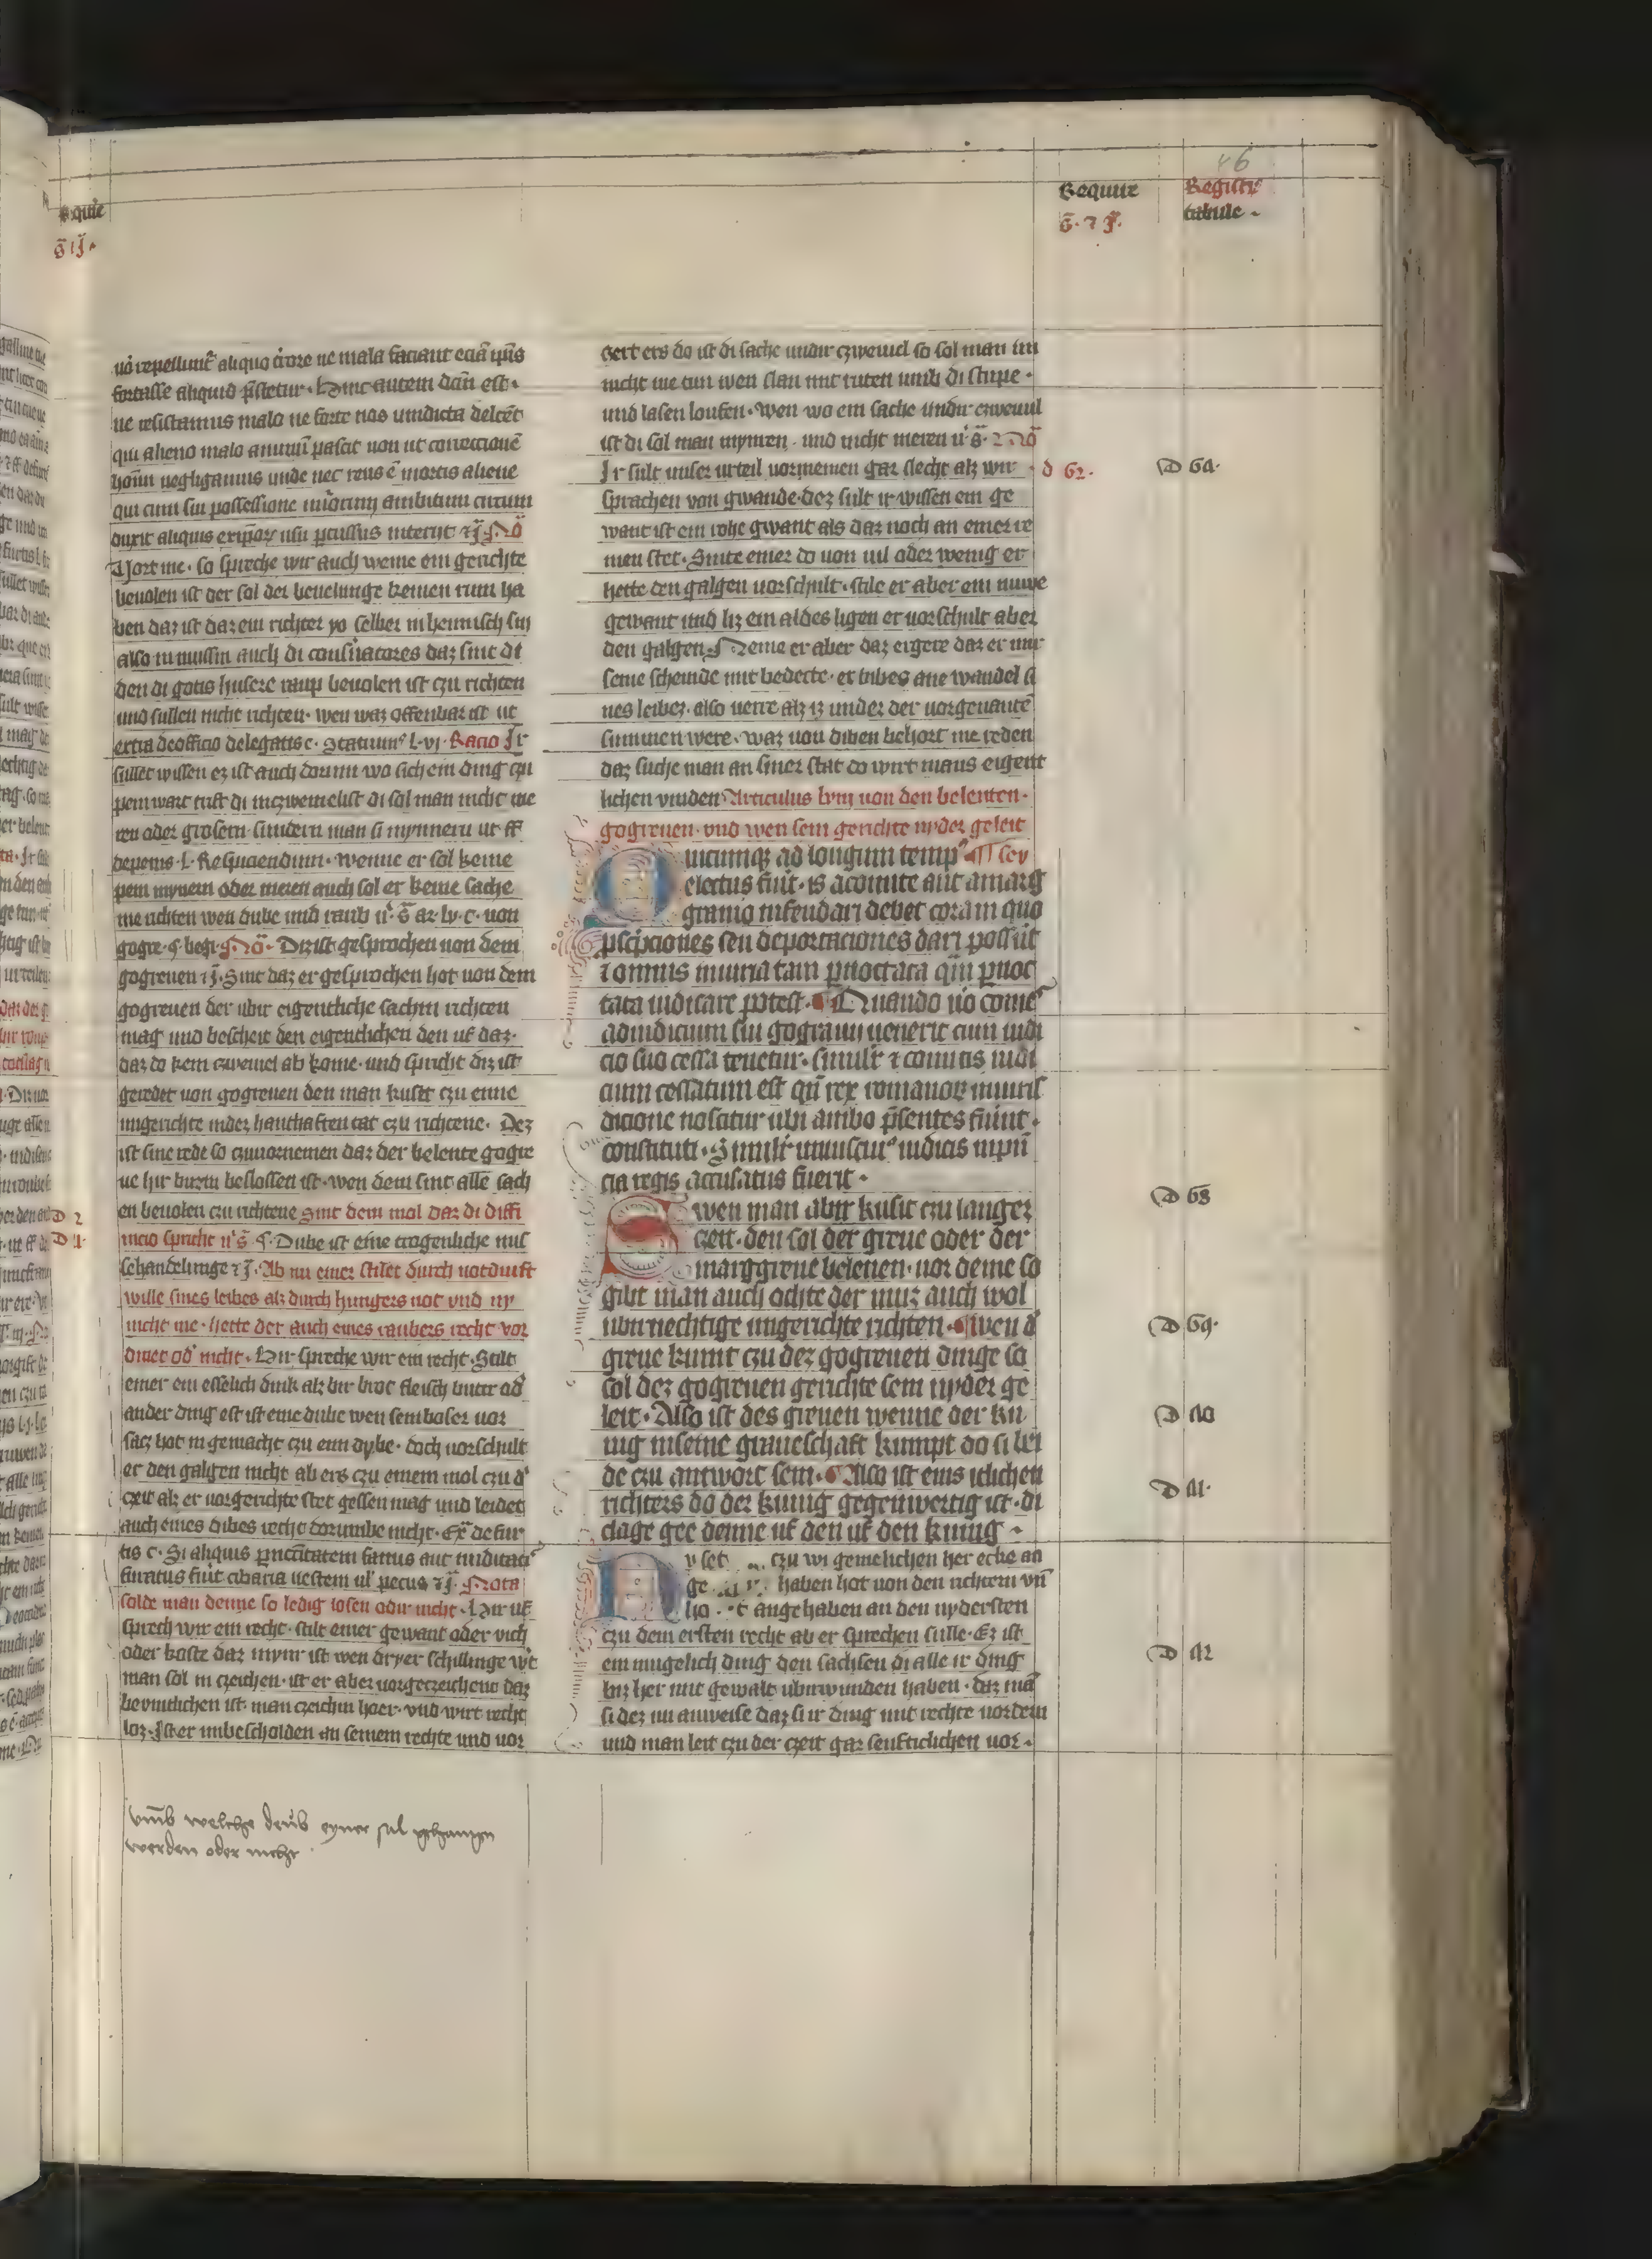 Requir̄
Registr̄
tabule
uō repellunt᷑ aliquo t̄rore ne mala faciant eciā ip̄is
fortasse aliquid p̄stetur · Hinc autem dc̄m est ·
ne resistamus malo ne forte nos vindicta delc̄et
qui alieno malo animū pascit non ut correccionē
hoīm negligamus unde nec reus ē mortis aliene
qui cum sui possessione muōrum ambitum circum
duxit aliquis ex ip̄or̄ usu pcussus interiit ⁊ J̄ · Nō
Vort me · so spreche wir auch weme ein gerichte
beuolen ist der sol der beuelunge keinen rum ha
ben daz ist daz ein richter yo selber in heimisch sin
also muissin auch di cons̄uatores daz sint di
den di gotis husere raup beuolen ist czu richten
und sullen nicht richten · wen waz offenbar ist ut
extra de officio delegatis c · Statuim᷒ l · vj · Racio Jr
sullet wissen ez ist auch dorum wo sich ein ding czu
pein wart tuft di inczweinelist di sol man nicht me
ren oder grosern · sundern man si mynnern ut ff
depenis · l · Respiciendum · wenne er sol keine
pein mynern oder meren auch sol er keine sache
me richten wen dube und raub u᷒ · s̄ ar · lv · c · von
gogre · §. begr · Nō · Diz ist gesprochen von dem
gogreuen ⁊ J̄ · Sint daz er gesprochen hot von dem
gogreuen der ubir eigentliche sachin richten
mag und bescheit den eigentlichen den uf daz ·
daz do kein czweiuel ab kome · und spricht diz ist
geredet von gogreuen den man kuset czu eime
ungerichte in der hanthaften tat czu richtene · Dez
ist sine rede so czuuornemen daz der belente gogre
ue hir buzin beslossen ist · wen dem sint alle sach
en beuolen czu richtene Sint dem mol daz di diffi
nicio spricht u᷒ s̄ §. Dube ist eine trogenliche mis
sehandelunge ⁊ J̄ · Ab nu einer stilet durch notduift
wille sines leibes alz durch hungers not und ny
nicht me · hette der auch eines raubers recht vor
dinet od᷑ nicht · Hir spreche wir ein recht · Stilt
einer ein esselich dink alz bir brot fleisch butter od᷑
ander ding est ist eine dube wen sein boser vor
sacz hot in gemacht czu eim dybe · doch vorschult
er den galgen nicht ab ers czu einem mol czu d᷑
czeit alz er vor gerichte stet gessen mag und leidet
auch eines dibes recht dorumbe nicht · Ex̄ de fur
tis c · Si aliquis p necc̄itatem famis aut nuditati᷒
furatus fuit cibaria uestem ul᷑ pecus ⁊ J̄ · Nota
solde man denne so ledig losen odir nicht · Hir uf
sprech wir ein recht · stilt einer gewant oder vich
oder koste daz mynr ist wen dryer schillinge w᷑t
man sol in czeichen · ist er aber vorgeczeichent daz
bevintlichen ist · man czeichin hoer · und wirt recht
loz · Jst er unbescholden an seinem rechte und vor
vm̄b welche deub eyner sal gehangen
werden oder nicht
gert ers do ist di sache undir czweiuel so sol man im
nicht me tun wen slan mit ruten umb di stupe ·
und lasen loufen · wen wo ein sache undir czweuul
ist di sol man mynren · und nicht meren u᷒ s̄ · 2 Nō
Jr sult unser urteil vornemen gar slecht alz wir
sprachen von gwande · dez sult ir wissen ein ge
want ist ein rohe gwant als daz noch an einer re
men stet · Snite einer do von uil oder wenig er
hette den galgen vorschult · stile er aber ein nuwe
gewant und liz ein aldes ligen er vorschult aber
den galgen · Neme er aber daz ergere daz er mir
seine scheinde mit bedecte · er blibes ane wandel si
nes leibez · also uerre alz iz under der vorgenantē
summen were · waz von diben behort me reden
daz suche man an siner stat do wirt mans eigent
lichen vinden Articulus lvnj von den belenten ·
gogreuen · vnd wen sein gerichte nyder geleit
Quicumqꝫ ad longum temp᷒ ¶ sey
electus fuit · is a comite aut a marg
granio infeudari debet coram quo
pscp̄ciones seu deportaciones dari possūt
⁊ omnis iniuria tam pnoctata qm̄ pnoc
tata iudicare potest · ¶ Quando uō come᷒
ad iudicium sui gograuij uenerit cum iudi
cio suo cessa tenetur · simili᷑ ⁊ comitis iudi
cium cessatum est qn̄ rex romanor̄ in iuris
dicione noscatur ubi ambo p̄sentes fuint ·
constituti · Simili᷑ uniuscui᷒ iudicis in p̄n̄
cia regis accusatus fuerit ·
Swen man abir kusit czu langer
czeit · den sol der greue oder der
marggreue belenen · vor deme so
gibt man auch ochte der muz auch wol
ubirnechtige ungerichte richten · ¶ wen d᷑
greue kumt czu dez gogreuen dinge so
sol dez gogreuen gerichte sein nyder ge
leit · Also ist des greuen wenne der ku
nig in seine graueschaft kumpt do si bei
de czu antwort sein · ¶ Also ist eins itlichen
richters do der kunig gegenwertig ist · di
clage gee denne uf den uf den kunig ·
czu wi gemelichen her ecke an
ge haben hot von den richtern vn̄
angehaben an den nydersten
czu dem ersten recht ab er sprechen sulle · Ez ist
ein mugelich ding den sachsen di alle ir ding
biz her mit gewalt ubirwunden haben · daz mā
si dez nu anweise daz si ir ding mit rechte vordern
und man leit czu der czeit gar senfticlichen vor ·
D 68
D 69